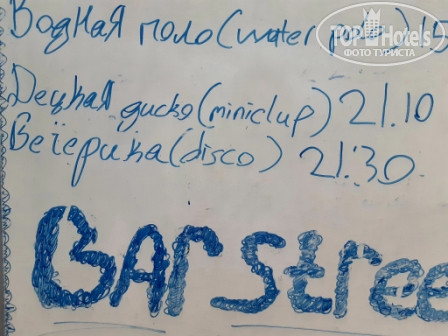 Водная поло (water polo) 15
TOP Hotels
ФОТО ТУРИСТА
Децкая диско (miniclup) 21.10
Вечерика (disco) 21:30
BAr Stree